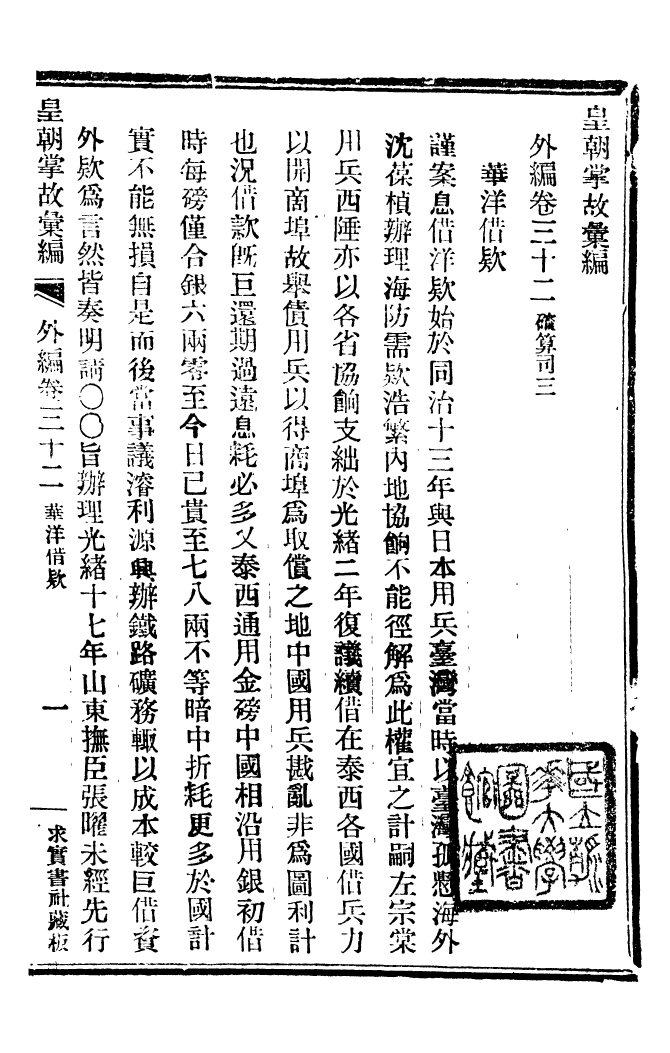 皇朝掌故彙編
外編卷三十二 䃤算司三
華洋借欵
謹案息借洋欵始於同治十三年與日本用兵臺灣當時以臺灣孤懸海外
沈葆楨辦理海防需欵浩繁內地協餉不能徑解爲此權宜之計嗣左宗棠
用兵西陲亦以各省協餉支絀於光緒二年復議續借在泰西各國借兵力
以開商埠故舉債用兵以得商埠爲取償之地中國用兵戡亂非爲圖利計
也況借款旣巨還期過遠息耗必多又泰西通用金磅中國相沿用銀初借
時每磅僅合銀六兩零至今日已貴至七八兩不等暗中折耗更多於國計
實不能無損自是而後當事議濬利源興辦鐵路礦務輙以成本較巨借資
外欵爲言然皆奏明請〇〇旨辦理光緒十七年山東撫臣張曜未經先行
皇朝掌故彙編 外編卷三十二 華洋借欵 一 求實書社藏板
國立清華大學圖書館藏